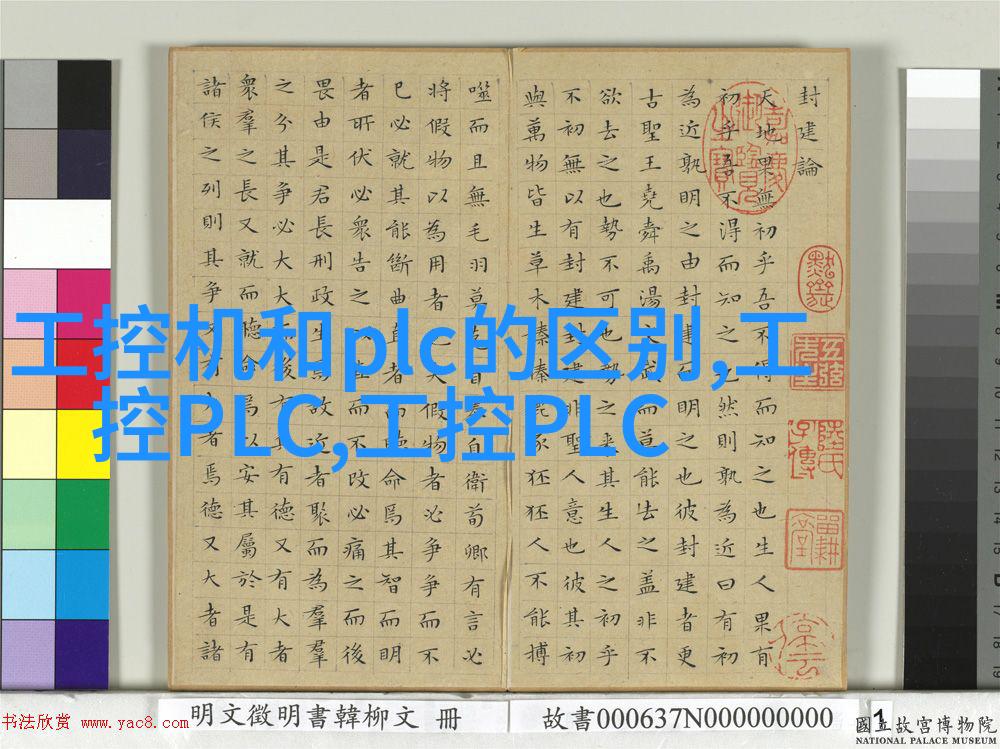 封建論
天地果無初乎吾不得而知之也生人果有
初乎吾不得而知之也然則孰為近曰有初
為近孰明之由封建而明之也彼封建者更
古聖王堯舜禹湯文武而莫能去之蓋非不
欲去之也勢不可也勢之来其生人之初乎
不初無以有封建封建非聖人意也彼其初
與萬物皆生草木榛榛鹿豕狉狉人不能搏
噬而且無毛羽莫克自奉自衛荀卿有言必
將假物以為用者也夫假物者必爭爭而不
已必就其能斷曲直者而聽命焉其智而明
者所伏必衆告之以直而不改必痛之而後
畏由是君長刑政生焉故近者聚而為羣
之分其爭必大大而後有兵有德又有大者
衆羣之長又就而聽命焉以安其屬於是有
諸侯之列則其爭又有大者焉德又大者諸
工控机和plc的区别,工
控PLC,工控PLC
书法欣赏 www.yac8.com
明文徵明書韓柳文 冊
故書000637N000000000
1
國立故宮博物院
NATIONAL PALACE MUSEUM